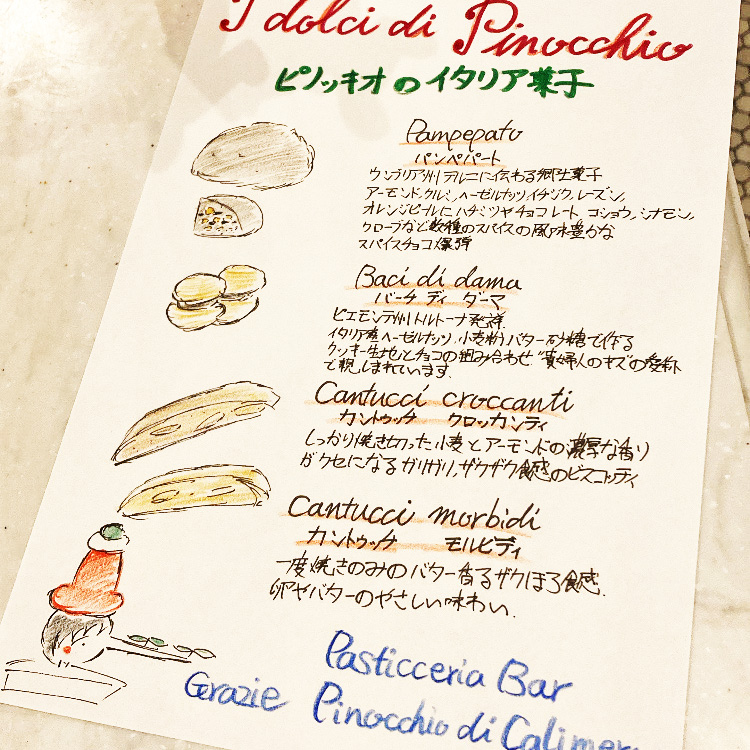 I dolci di Pinocchio
ピノッキオのイタリア菓子
Pampepato
パンペパート
ウンブリア州テルニに伝わる郷土菓子
アーモンド,クルミ,ヘーゼルナッツ,イチジク,レーズン,
オレンジピールにハチミツやチョコレート,コショウ,シナモン,
クローブなど数種のスパイスの風味豊かな
スパイスチョコ爆弾
Baci di dama
バーチ ディ ダーマ
ピエモンテ州トルトーナ発祥
イタリア産ヘーゼルナッツ,小麦粉,バター,砂糖で作る
クッキー生地とチョコの組み合わせ.“貴婦人のキス”の愛称
で親しまれています.
Cantucci croccanti
カントゥッチ クロッカンティ
しっかり焼き切った小麦とアーモンドの濃厚な香り
がクセになるガリガリ,ザクザク食感のビスコッティ
Cantucci morbidi
カントゥッチ モルビディ
一度焼きのみのバター香るザクほろ食感.
卵やバターのやさしい味わい.
Pasticceria Bar
Grazie Pinocchio di Calimer